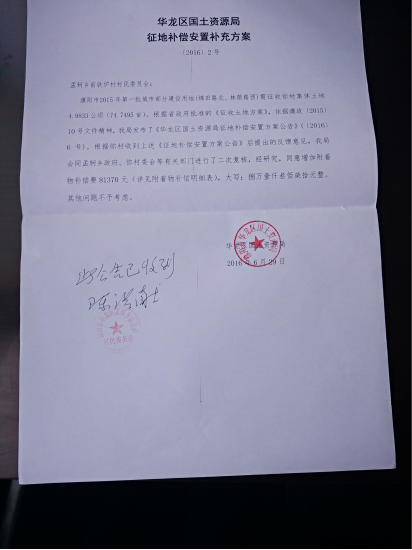 华龙区国土资源局
征地补偿安置补充方案
〔2016〕2号
孟轲乡前铁炉村村民委员会:
濮阳市2015年第一批城市部分建设用地(锦田路北、林荫路西)需征收你村集体土地
4.9833公顷(74.7495亩)。根据省政府批准的《征收土地方案》,依据濮政〔2015〕
10号文件精神,我局发布了《华龙区国土资源局征地补偿安置方案公告》(〔2016〕
6号)。根据你村收到上述《征地补偿安置方案公告》后提出的反馈意见,我局
会同孟轲乡政府、你村委会等有关部门进行了二次复核,经研究,同意增加附着
物补偿费81370元(详见附着物补偿明细表)。大写:捌万壹仟叁佰柒拾元整。
其他问题不予考虑。
华龙区国土资源局
2016年6月29日
此公告已收到